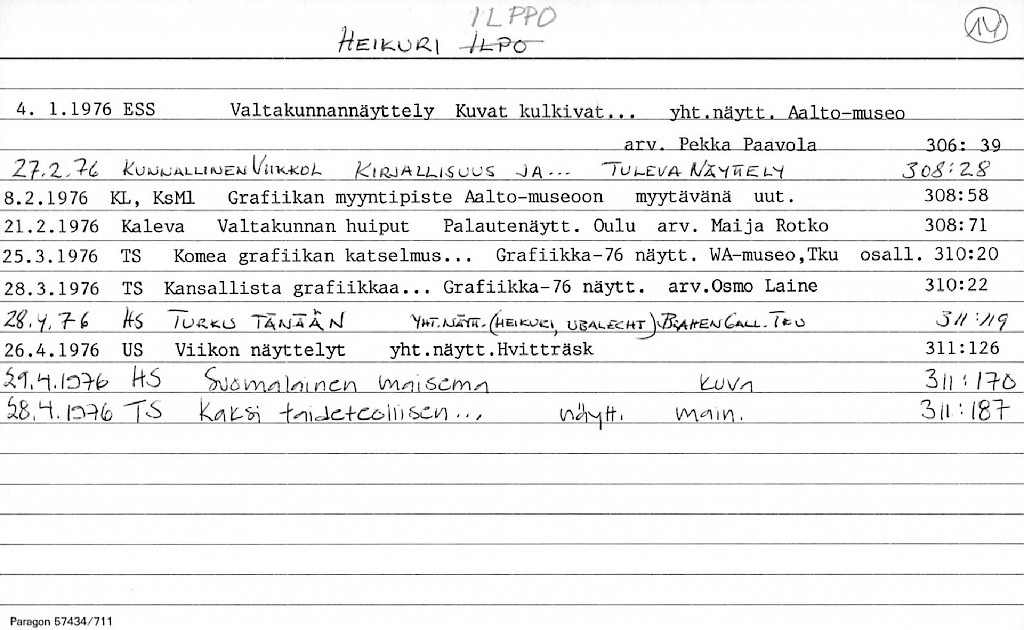 ILPPO
HEIKURI ILPO
14
4. 1.1976 ESS Valtakunnannäyttely Kuvat kulkivat... yht.näytt. Aalto-museo
arv. Pekka Paavola 306: 39
27.2.76 KUNNALLINEN VIIKKOL KIRJALLISUUS JA... TULEVA NÄYTTELY 308:28
8.2.1976 KL, KsMl Grafiikan myyntipiste Aalto-museoon myytävänä uut. 308:58
21.2.1976 Kaleva Valtakunnan huiput Palautenäytt. Oulu arv. Maija Rotko 308:71
25.3.1976 TS Komea grafiikan katselmus... Grafiikka-76 näytt. WA-museo,Tku osall. 310:20
28.3.1976 TS Kansallista grafiikkaa... Grafiikka-76 näytt. arv.Osmo Laine 310:22
28.4.76 HS TURKU TÄNÄÄN YHT.NÄYTT.(HEIKURI, UBALECHT) BRAHEN GALL. TKU 311:119
26.4.1976 US Viikon näyttelyt yht.näytt.Hvitträsk 311:126
29.4.1976 HS Suomalainen maisema kuva 311:170
28.4.1976 TS Kaksi taideteollisen... näytt. main. 311:187
Paragon 57434/711